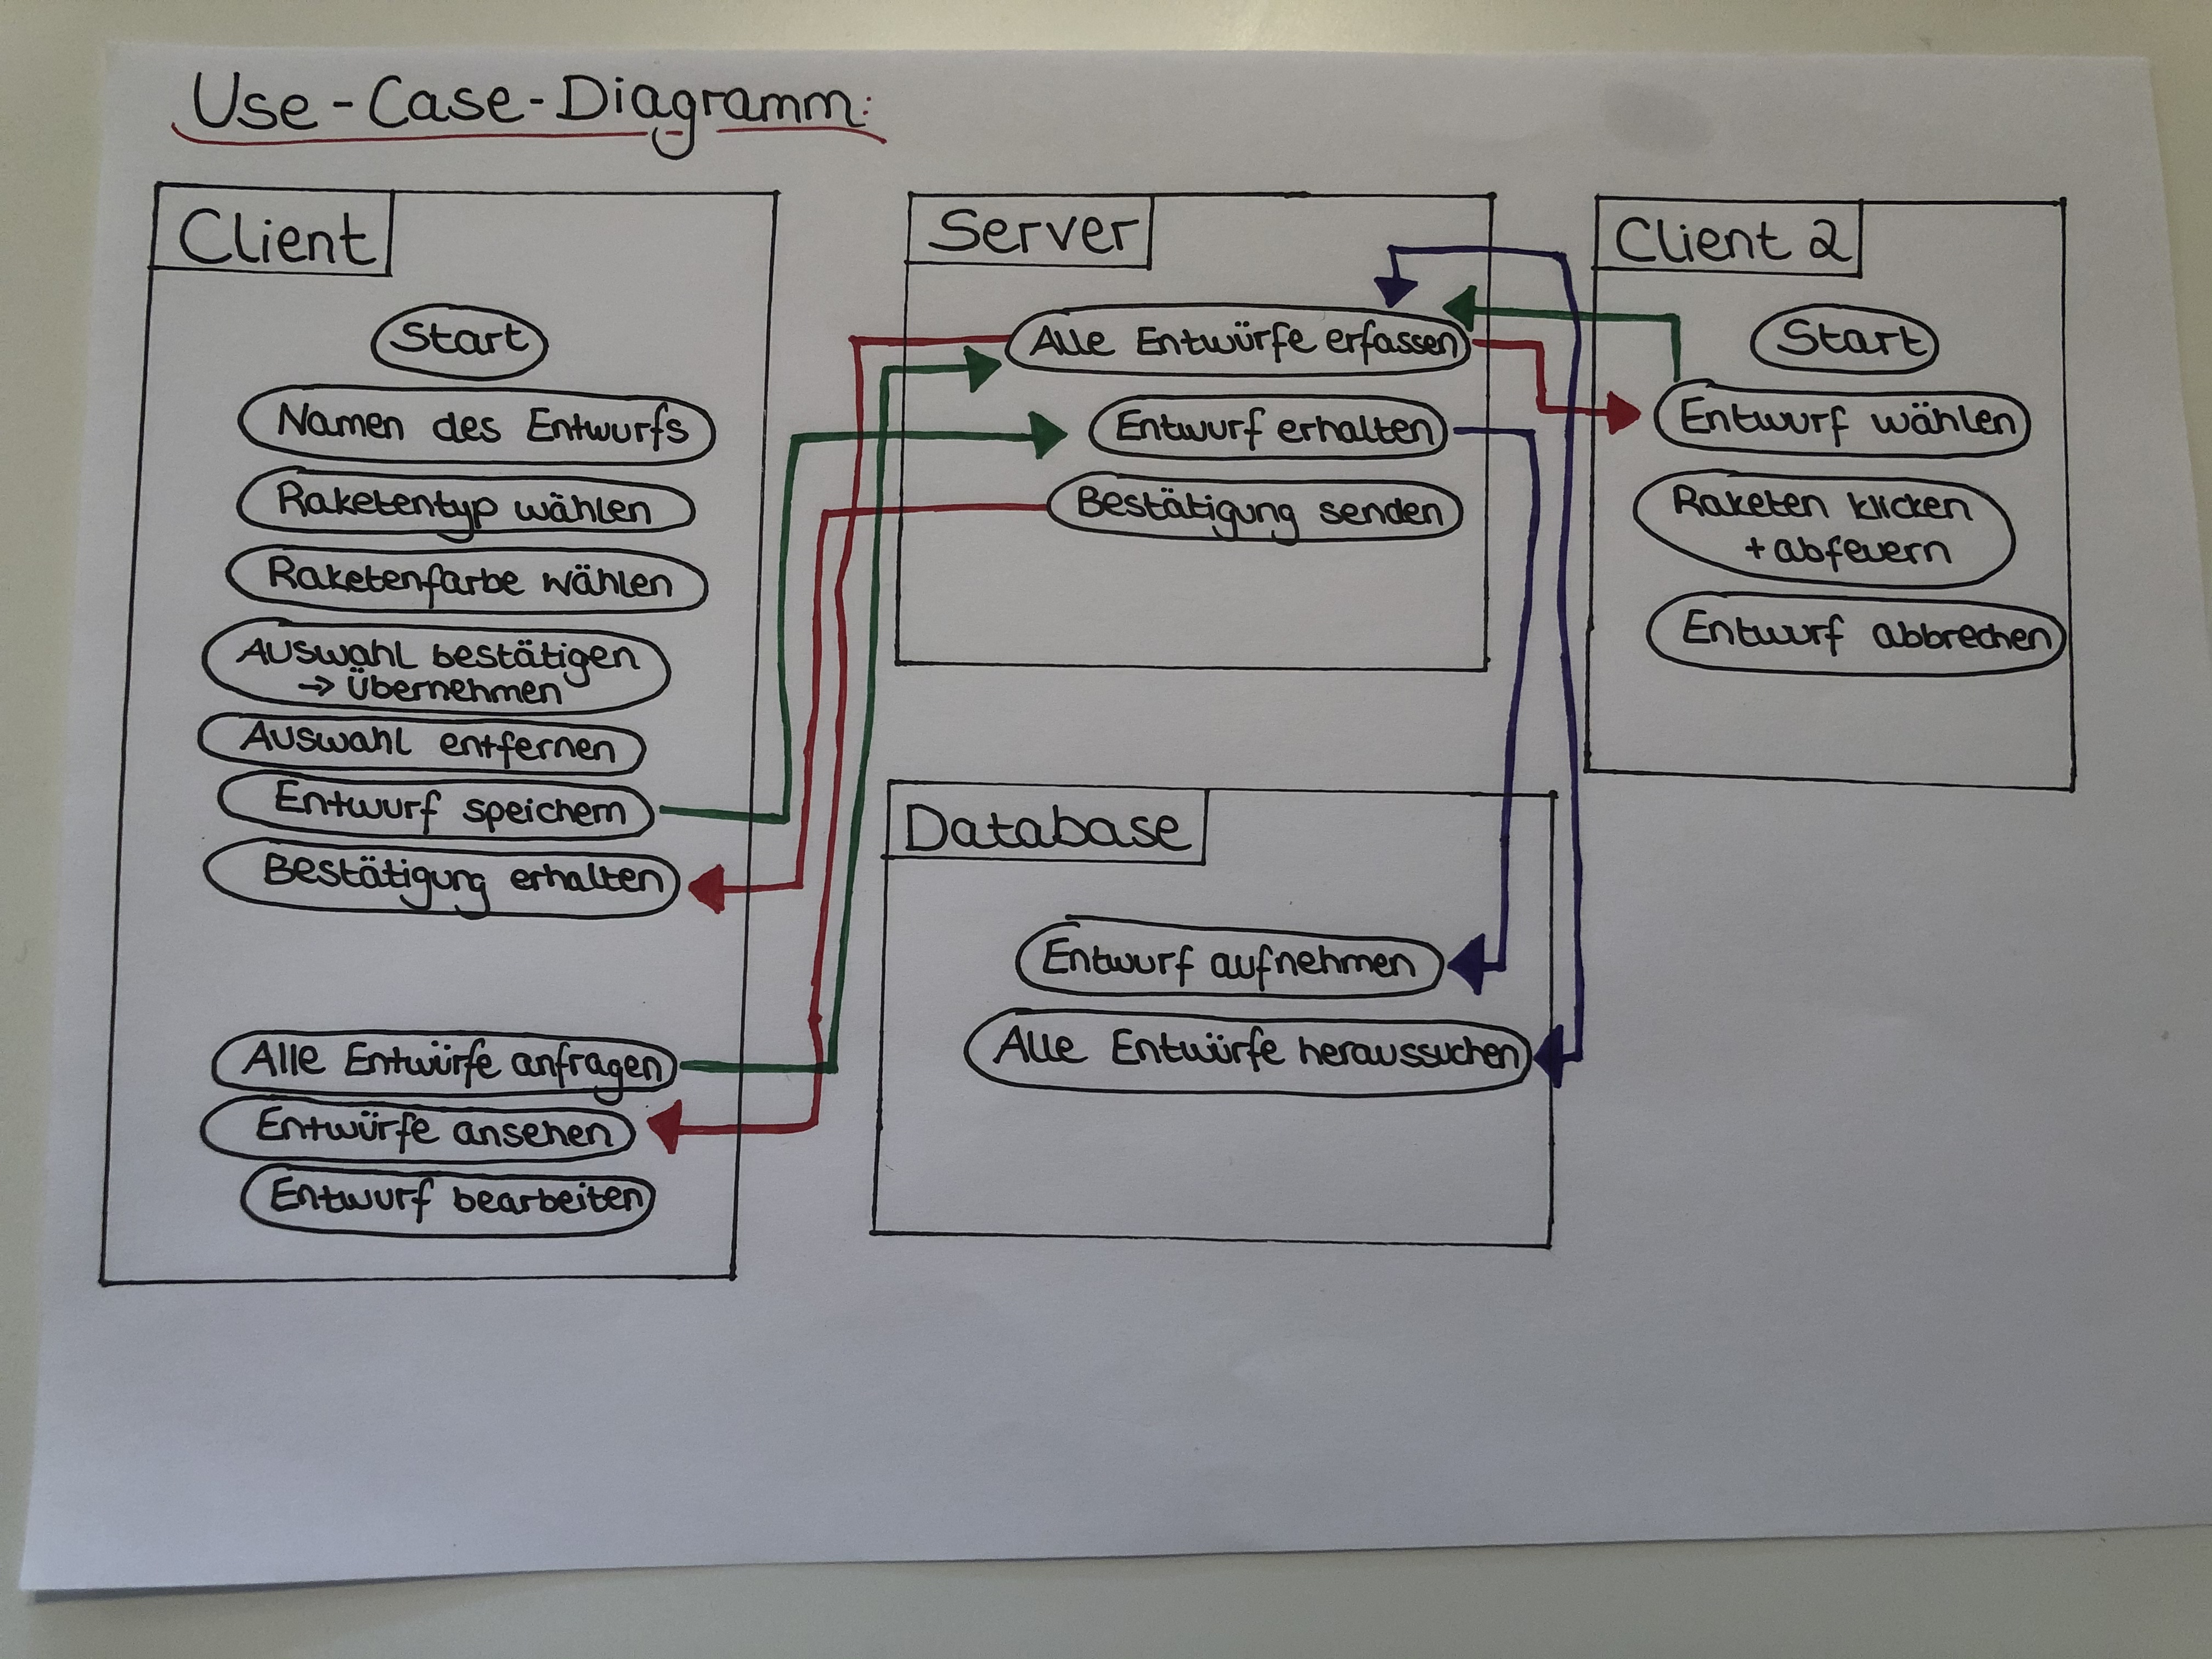 Use-Case-Diagramm:
Client
Start
Namen des Entwurfs
Raketentyp wählen
Raketenfarbe wählen
Auswahl bestätigen
→ Übernehmen
Auswahl entfernen
Entwurf speichern
Bestätigung erhalten
Alle Entwürfe anfragen
Entwürfe ansehen
Entwurf bearbeiten
Server
Alle Entwürfe erfassen
Entwurf erhalten
Bestätigung senden
Database
Entwurf aufnehmen
Alle Entwürfe heraussuchen
Client 2
Start
Entwurf wählen
Raketen klicken
+ abfeuern
Entwurf abbrechen